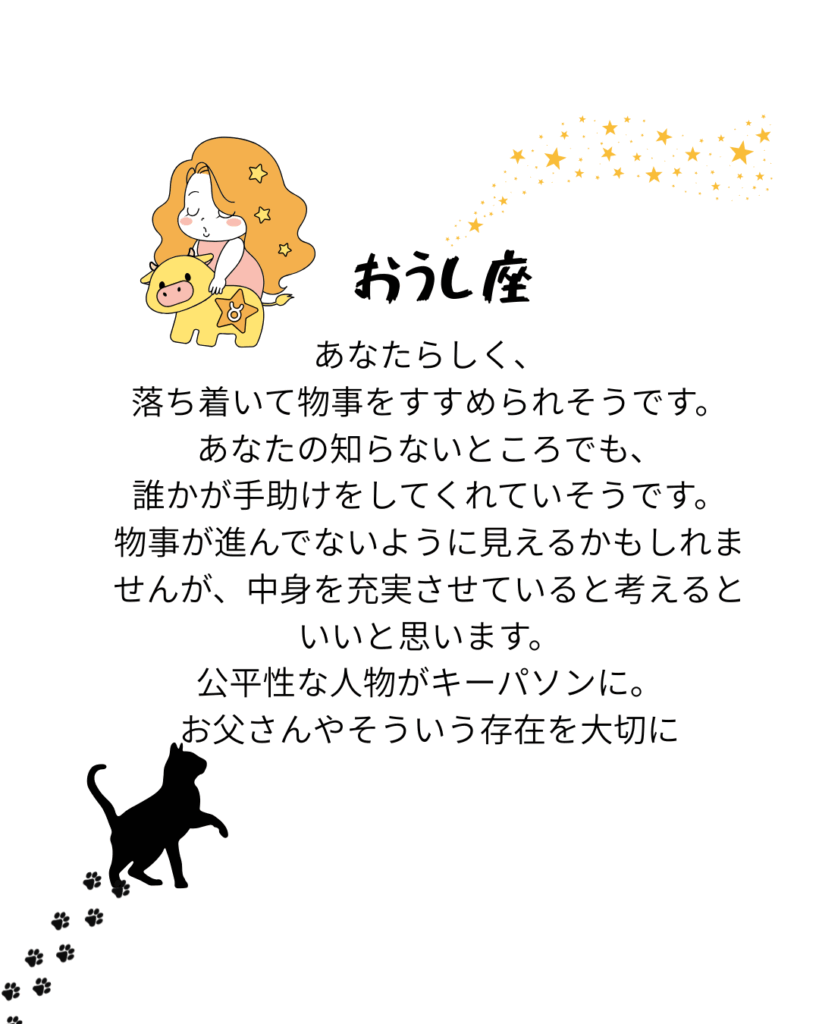 おうし座
あなたらしく、
落ち着いて物事をすすめられそうです。
あなたの知らないところでも、
誰かが手助けをしてくれていそうです。
物事が進んでないように見えるかもしれま
せんが、中身を充実させていると考えると
いいと思います。
公平性な人物がキーパソンに。
お父さんやそういう存在を大切に